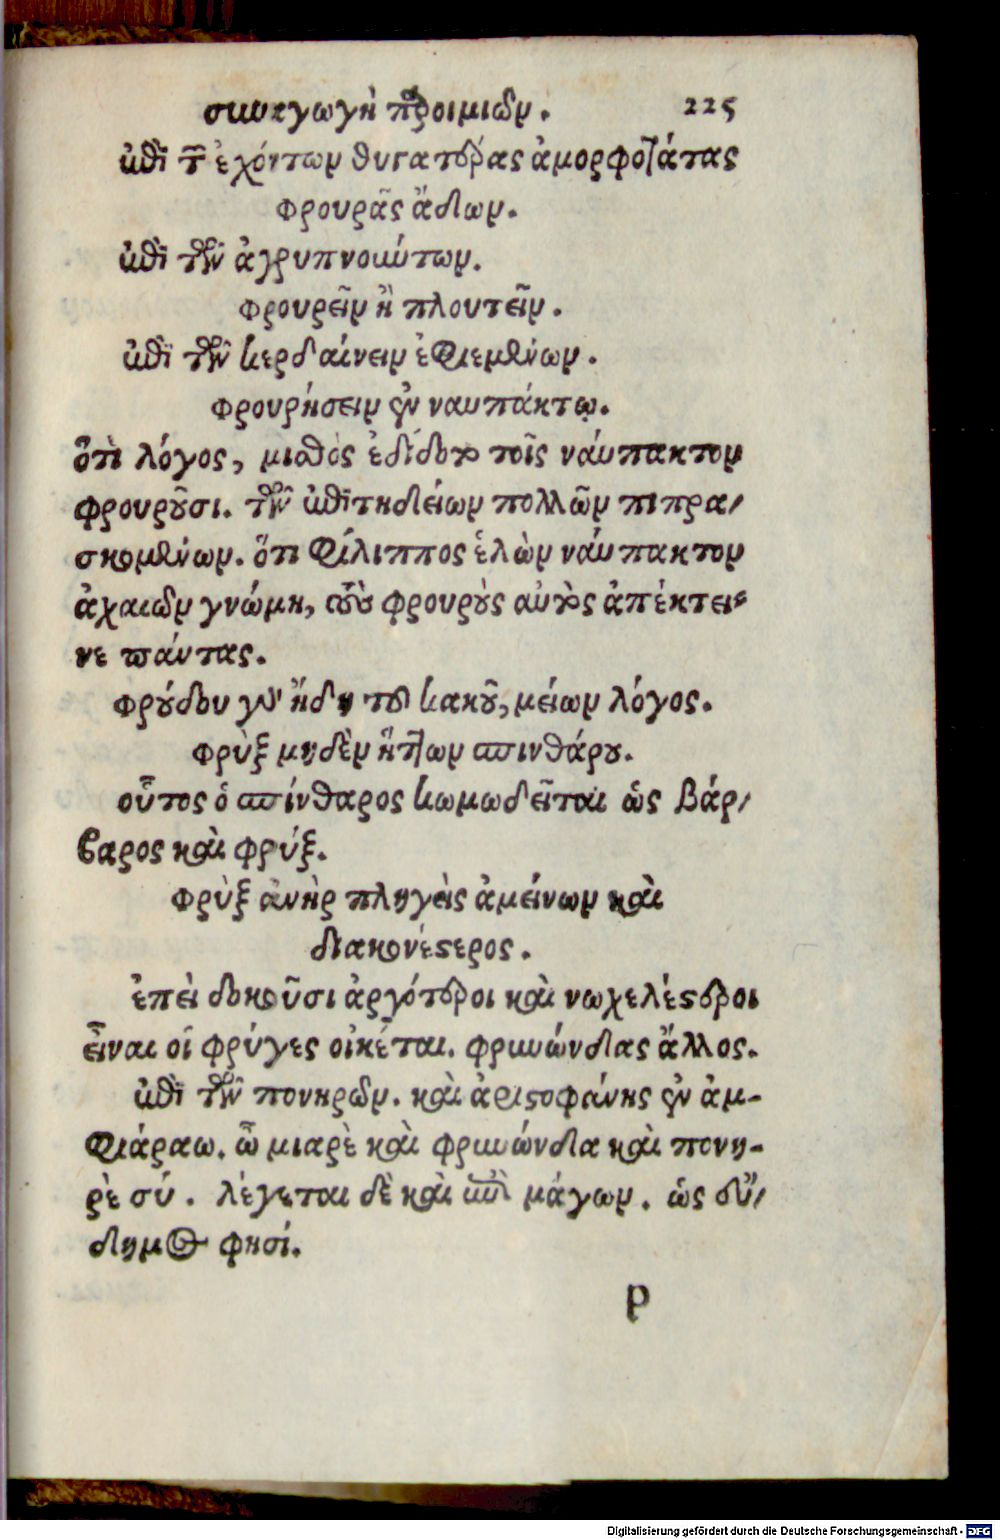 συναγωγὴ παροιμιῶν. 225
ἐπὶ τῶν ἐχόντων θυγατέρας ἀμορφοτάτας
φρουρᾶς ἄδων.
ἐπὶ τῶν ἀγρυπνούντων.
φρουρεῖν ἢ πλουτεῖν.
ἐπὶ τῶν κερδαίνειν ἐφιεμένων.
φρουρήσειν ἐν ναυπάκτῳ.
ὅτι λόγος, μισθὸς ἐδίδοτο τοῖς ναύπακτον
φρουροῦσι. τῶν ἐπιτηδείων πολλῶν πιπρα-
σκομένων. ὅτι Φίλιππος ἑλὼν ναύπακτον
ἀχαιῶν γνώμη, τοὺς φρουροὺς αὐτοὺς ἀπέκτει-
νε πάντας.
φρούδου γὰρ ἤδη τοῦ κακοῦ, μείων λόγος.
φρὺξ μηδὲν ἥττων σπινθάρου.
οὗτος ὁ σπίνθαρος κωμωδεῖται ὡς βάρ-
βαρος καὶ φρύξ.
φρὺξ ἀνὴρ πληγεὶς ἀμείνων καὶ
διακονέστερος.
ἐπεὶ δοκοῦσι ἀργότεροι καὶ νωχελέστεροι
εἶναι οἱ φρύγες οἰκέται. φρυνώνδας ἄλλος.
ἐπὶ τῶν πονηρῶν. καὶ ἀριστοφάνης ἐν ἀμ-
φιάραω. ὦ μιαρὲ καὶ φρυνώνδα καὶ πονη-
ρὲ σύ. λέγεται δὲ καὶ ἐπὶ μάγων. ὡς εὔ-
δημος φησί.
ρ
Digitalisierung gefördert durch die Deutsche Forschungsgemeinschaft - DFG